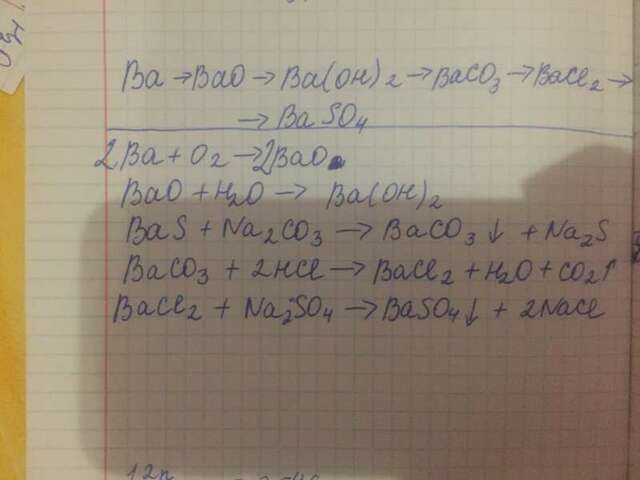 Ba → BaO → Ba(OH)2 → BaCO3 → BaCl2 →
→ BaSO4
2Ba + O2 → 2BaO
BaO + H2O → Ba(OH)2
BaS + Na2CO3 → BaCO3↓ + Na2S
BaCO3 + 2HCl → BaCl2 + H2O + CO2↑
BaCl2 + Na2SO4 → BaSO4↓ + 2NaCl